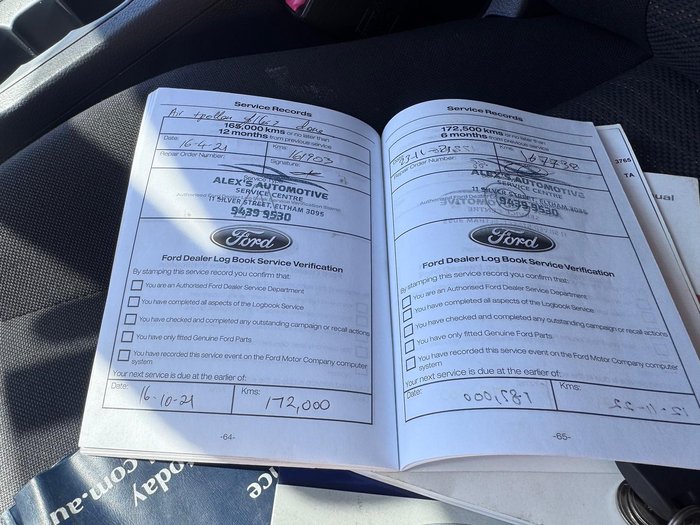 Service Records
Air + pollen filters done
165,000 kms or no later than
12 months from previous service
Date: Kms:
16-4-21 161803
Repair Order Number: Signature:
ALEX'S AUTOMOTIVE
SERVICE CENTRE
11 SILVER STREET, ELTHAM 3095
9439 9530
Ford
Ford Dealer Log Book Service Verification
By stamping this service record you confirm that:
You are an Authorised Ford Dealer Service Department
You have completed all aspects of the Logbook Service
You have checked and completed any outstanding campaign or recall actions
You have only fitted Genuine Ford Parts
You have recorded this service event on the Ford Motor Company computer
system
Your next service is due at the earlier of:
Date: Kms:
16-10-21 172,000
-64-
Service Records
172,500 kms or no later than
6 months from previous service
Repair Order Number:
ALEX'S AUTOMOTIVE
SERVICE CENTRE
11 SILVER STREET, ELTHAM 3095
9439 9530
Ford
Ford Dealer Log Book Service Verification
By stamping this service record you confirm that:
You are an Authorised Ford Dealer Service Department
You have completed all aspects of the Logbook Service
You have checked and completed any outstanding campaign or recall actions
You have only fitted Genuine Ford Parts
You have recorded this service event on the Ford Motor Company computer
system
Your next service is due at the earlier of:
Date: Kms:
-65-
3765
TA
ual
today
.com.au